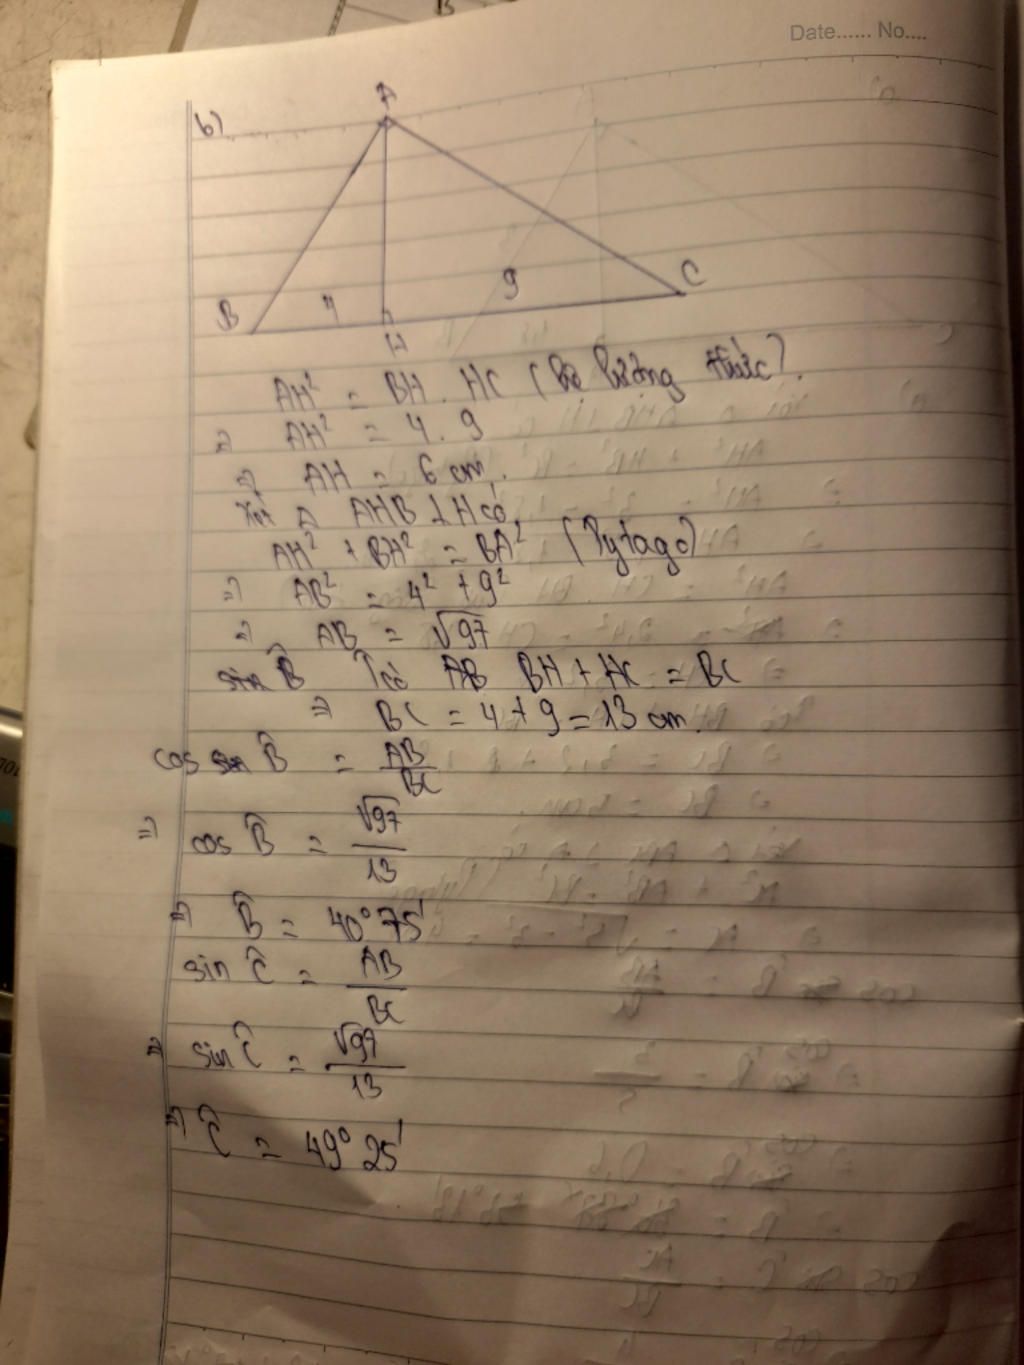 Date...... No....
b)
A
B 4 9 C
H
AH² = BH . HC (hệ lượng thức).
⇒ AH² = 4 . 9
⇒ AH = 6 cm.
Xét Δ AHB ⊥ H có
AH² + BH² = BA² (Pytago)
⇒ AB² = 4² + 9²
⇒ AB = √97
Tcó BH + HC = BC
⇒ BC = 4 + 9 = 13 cm.
cos B̂ = AB/BC
⇒ cos B̂ = √97/13
⇒ B̂ = 40°75'
sin Ĉ = AB/BC
⇒ sin Ĉ = √97/13
⇒ Ĉ = 49°25'